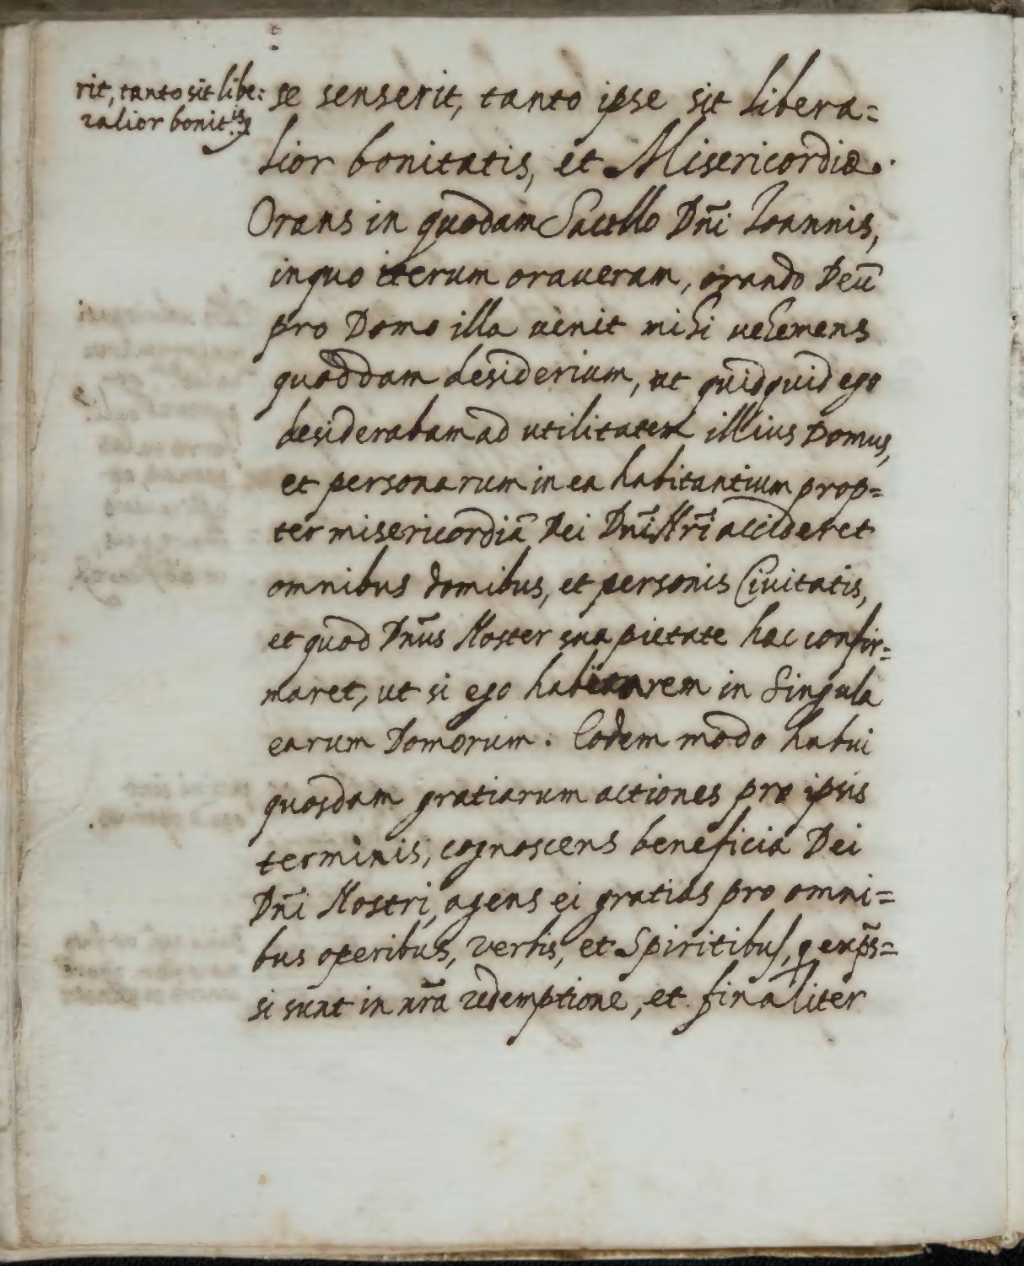 rit, tanto sit libe:
ralior bonit.is
se senserit, tanto ipse sit libera=
lior bonitatis, et Misericordiæ.
Orans in quodam Sacello Dñi Ioannis,
in quo iterum oraueram, orando Deũ
pro Domo illa uenit mihi uehemens
quoddam desiderium, ut quidquid ego
desiderabam ad utilitatem illius Domus,
et personarum in ea habitantium prop=
ter misericordiã Dei Dñi Nr̃i accideret
omnibus domibus, et personis Ciuitatis,
et quod Dñus Noster sua pietate hac confir=
maret, ut si ego habitarem in Singula
earum Domorum. Eodem modo habui
quosdam gratiarum actiones pro ipsis
terminis, cognoscens beneficia Dei
Dñi Nostri, agens ei gratias pro omni=
bus operibus, verbis, et Spiritibus,
si sunt in nr̃a redemptione, et finaliter